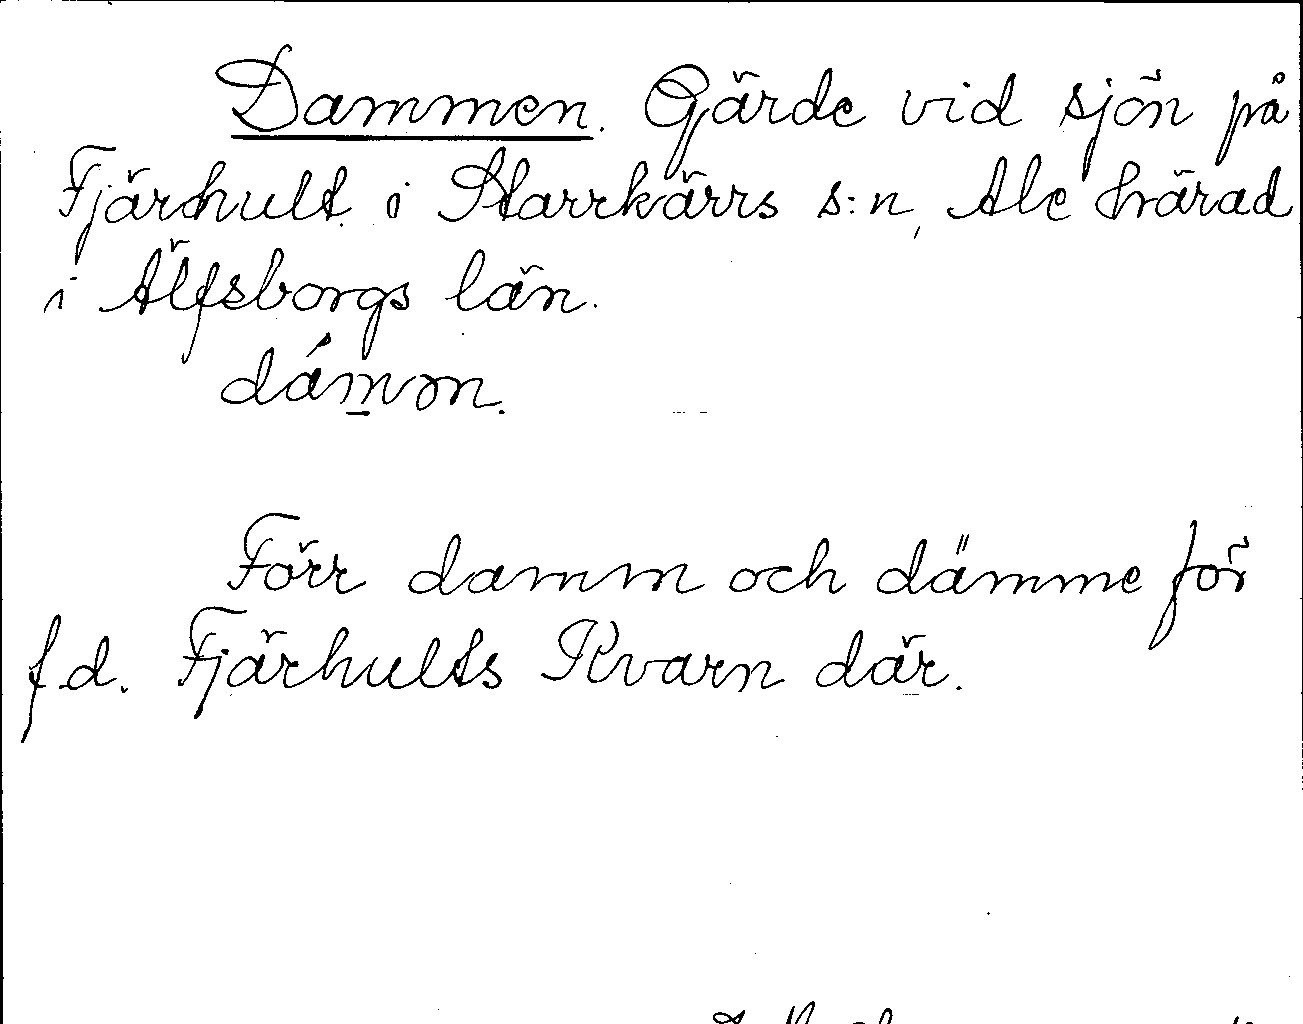 Dammen. Gärde vid sjön på
Fjärhult i Starrkärrs s:n, Ale härad
i Älfsborgs län.
dámɔn.
Förr damm och dämme för
f.d. Fjärhults Kvarn där.